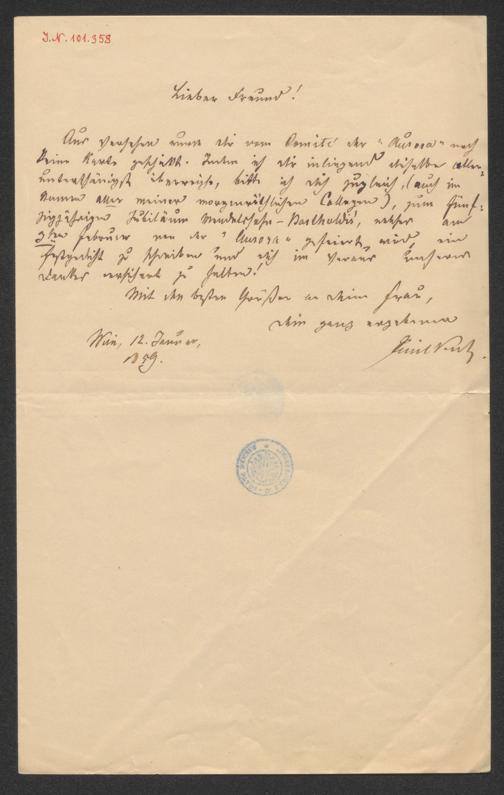 J.N. 101.358
Lieber Freund!
Aus Versehen wurde dir vom Comité der "Aurora" noch
keine Karte geschickt. Indem ich dir inliegend dieselbe aller-
unterthänigst überreiche, bitte ich dich zugleich, (auch im
Namen aller meiner morgenröthlichen Collegen), zum fünf-
zigjährigen Jubiläum Mendelssohn-Bartholdis, welches am
3ten Februar von der "Aurora" gefeiert wird, ein
Festgedicht zu schreiben und dich im Voraus unseres
Dankes versichert zu halten!
Mit den besten Grüßen an deine Frau,
dein ganz ergebener
Wien, 12. Januar,
1859.
Emil